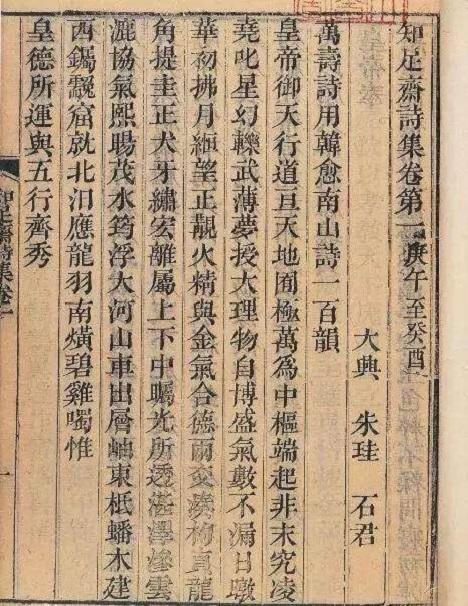 知足齋詩集卷第一 庚午至癸酉
大興 朱珪 石君
萬壽詩用韓愈南山詩一百韻
皇帝御天行道亘天地囿極萬為中樞端起非末究凌
堯叱星幻轢武薄夢授大理物自博盛氣數不漏日墩
華初拂月緪望正覯火精與金氣合德兩交湊枸直龍
角提圭正犬牙繡宏離屬上下中矚光所透湛澤滲雲
漉協氣熙暘茂水筠浮大河山車出層岫東柢蟠木建
西鐊翳窟就北汨應龍羽南熿碧雞噣惟
皇德所運與五行齊秀
知足齋詩集卷一
一